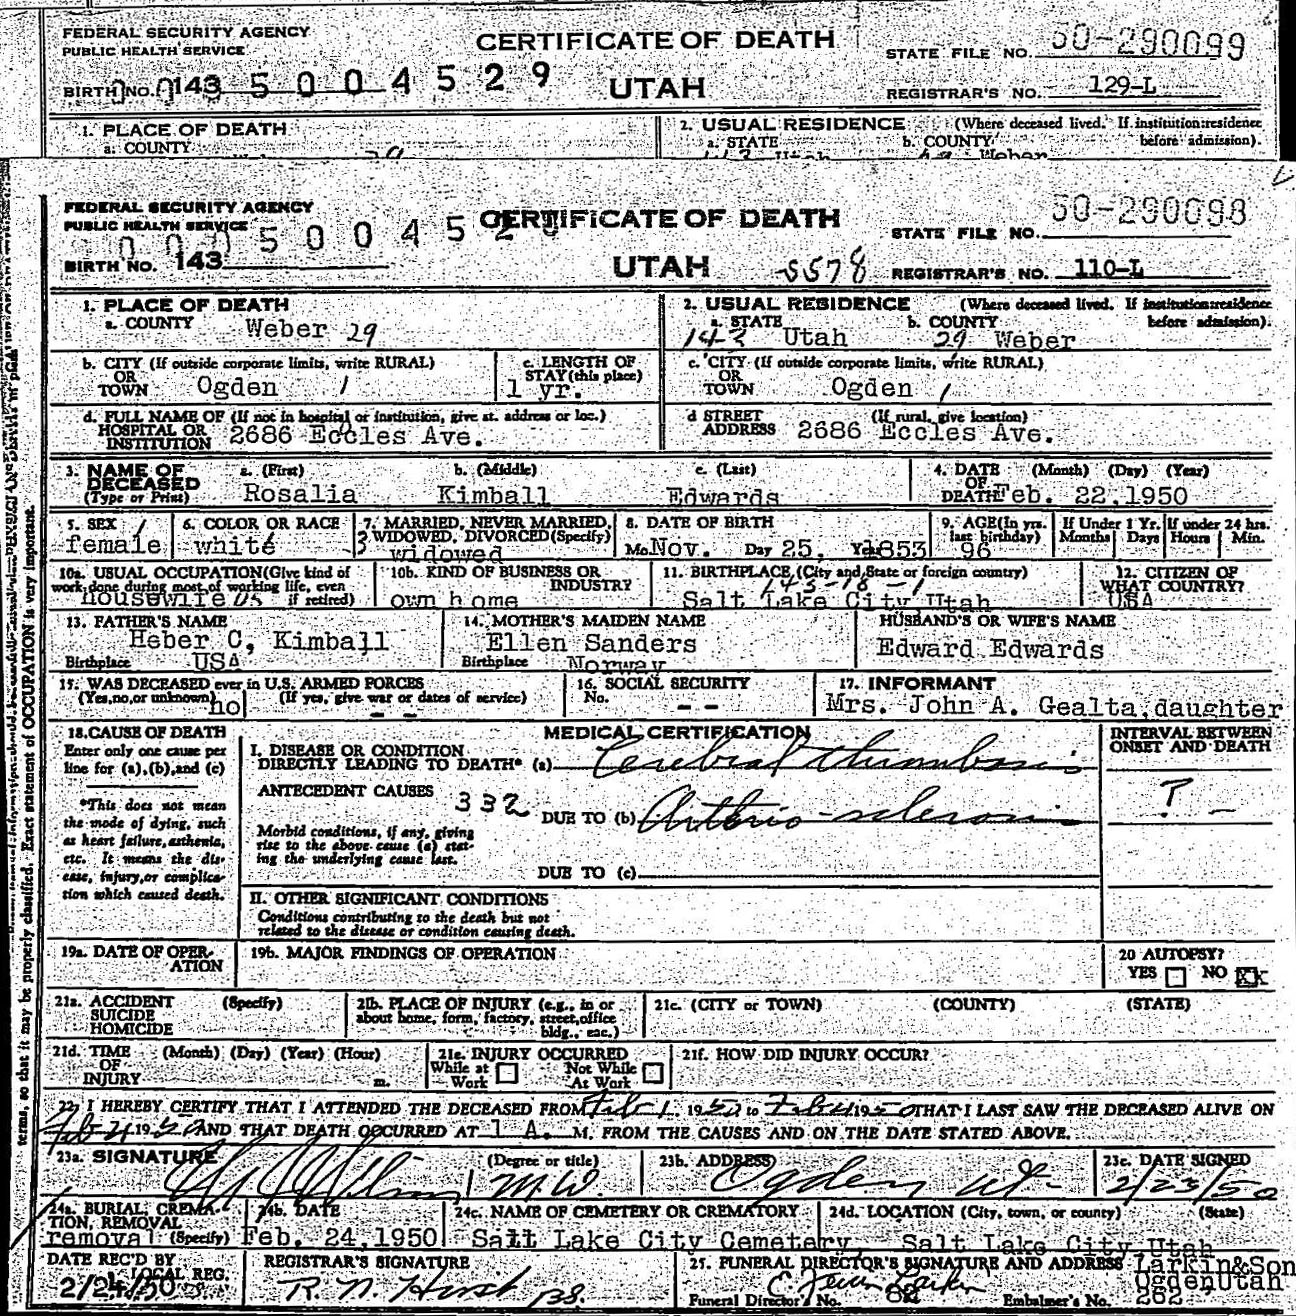 FEDERAL SECURITY AGENCY
PUBLIC HEALTH SERVICE
CERTIFICATE OF DEATH
STATE FILE NO. 50-290099
BIRTH NO. 143 5 0 0 4 5 2 9
UTAH
REGISTRAR'S NO. 129-L
1. PLACE OF DEATH
a. COUNTY
2. USUAL RESIDENCE (Where deceased lived. If institution:residence before admission).
a. STATE Utah b. COUNTY Weber
FEDERAL SECURITY AGENCY
PUBLIC HEALTH SERVICE
CERTIFICATE OF DEATH
STATE FILE NO. 50-290098
5 0 0 4 5 2
BIRTH NO. 143
UTAH 5578
REGISTRAR'S NO. 110-L
1. PLACE OF DEATH
a. COUNTY Weber 29
2. USUAL RESIDENCE (Where deceased lived. If institution:residence before admission).
a. STATE 143 Utah b. COUNTY 29 Weber
b. CITY (If outside corporate limits, write RURAL)
OR TOWN Ogden 1
c. LENGTH OF STAY (this place) 1 yr.
c. CITY (If outside corporate limits, write RURAL)
OR TOWN Ogden 1
d. FULL NAME OF (If not in hospital or institution, give st. address or loc.)
HOSPITAL OR INSTITUTION 2686 Eccles Ave.
d STREET ADDRESS (If rural, give location) 2686 Eccles Ave.
3. NAME OF DECEASED (Type or Print)
a. (First) Rosalia
b. (Middle) Kimball
c. (Last) Edwards
4. DATE OF DEATH (Month) (Day) (Year) Feb. 22,1950
5. SEX 1 female
6. COLOR OR RACE white
7. MARRIED, NEVER MARRIED, WIDOWED, DIVORCED (Specify) 3 widowed
8. DATE OF BIRTH
Mo. Nov. Day 25, Year 1853
9. AGE (In yrs. last birthday) 96
If Under 1 Yr. Months Days
If under 24 hrs. Hours Min.
10a. USUAL OCCUPATION (Give kind of work done during most of working life, even if retired) housewife
10b. KIND OF BUSINESS OR INDUSTRY own home
11. BIRTHPLACE (City and State or foreign country) Salt Lake City, Utah
12. CITIZEN OF WHAT COUNTRY? USA
13. FATHER'S NAME Heber C, Kimball
Birthplace USA
14. MOTHER'S MAIDEN NAME Ellen Sanders
Birthplace Norway
HUSBAND'S OR WIFE'S NAME
Edward Edwards
15. WAS DECEASED ever in U.S. ARMED FORCES
(Yes,no,or unknown) no (If yes, give war or dates of service) - -
16. SOCIAL SECURITY No. - -
17. INFORMANT
Mrs. John A. Gealta,daughter
18. CAUSE OF DEATH
Enter only one cause per line for (a),(b),and (c)
MEDICAL CERTIFICATION
INTERVAL BETWEEN ONSET AND DEATH
I. DISEASE OR CONDITION DIRECTLY LEADING TO DEATH* (a) Cerebral thrombosis
*This does not mean the mode of dying, such as heart failure, asthenia, etc. It means the disease, injury, or complication which caused death.
ANTECEDENT CAUSES 332
DUE TO (b) Arterio-sclerosis
? -
Morbid conditions, if any, giving rise to the above cause (a) stating the underlying cause last.
DUE TO (c)
II. OTHER SIGNIFICANT CONDITIONS
Conditions contributing to the death but not related to the disease or condition causing death.
19a. DATE OF OPERATION
19b. MAJOR FINDINGS OF OPERATION
20 AUTOPSY?
YES NO XX
21a. ACCIDENT SUICIDE HOMICIDE (Specify)
21b. PLACE OF INJURY (e.g., in or about home, form, factory, street,office bldg., eac.)
21c. (CITY or TOWN) (COUNTY) (STATE)
21d. TIME OF INJURY (Month) (Day) (Year) (Hour) m.
21e. INJURY OCCURRED
While at Work Not While At Work
21f. HOW DID INJURY OCCUR?
22. I HEREBY CERTIFY THAT I ATTENDED THE DECEASED FROM Feb 1, 1950 to Feb 1950 THAT I LAST SAW THE DECEASED ALIVE ON
Feb 1950 AND THAT DEATH OCCURRED AT 1 A. M. FROM THE CAUSES AND ON THE DATE STATED ABOVE.
23a. SIGNATURE
(Degree or title) M.D.
23b. ADDRESS Ogden Ut
23c. DATE SIGNED 2/23/50
24a. BURIAL, CREMATION, REMOVAL (Specify) removal
24b. DATE Feb. 24,1950
24c. NAME OF CEMETERY OR CREMATORY Salt Lake City Cemetery,
24d. LOCATION (City, town, or county) (State) Salt Lake City,Utah
DATE REC'D BY LOCAL REG. 2/24/50
REGISTRAR'S SIGNATURE
25. FUNERAL DIRECTOR'S SIGNATURE AND ADDRESS Larkin&Son
Ogden Utah
Funeral Director's No. 82 Embalmer's No. 262
terms, so that it may be properly classified. Exact statement of OCCUPATION is very important.